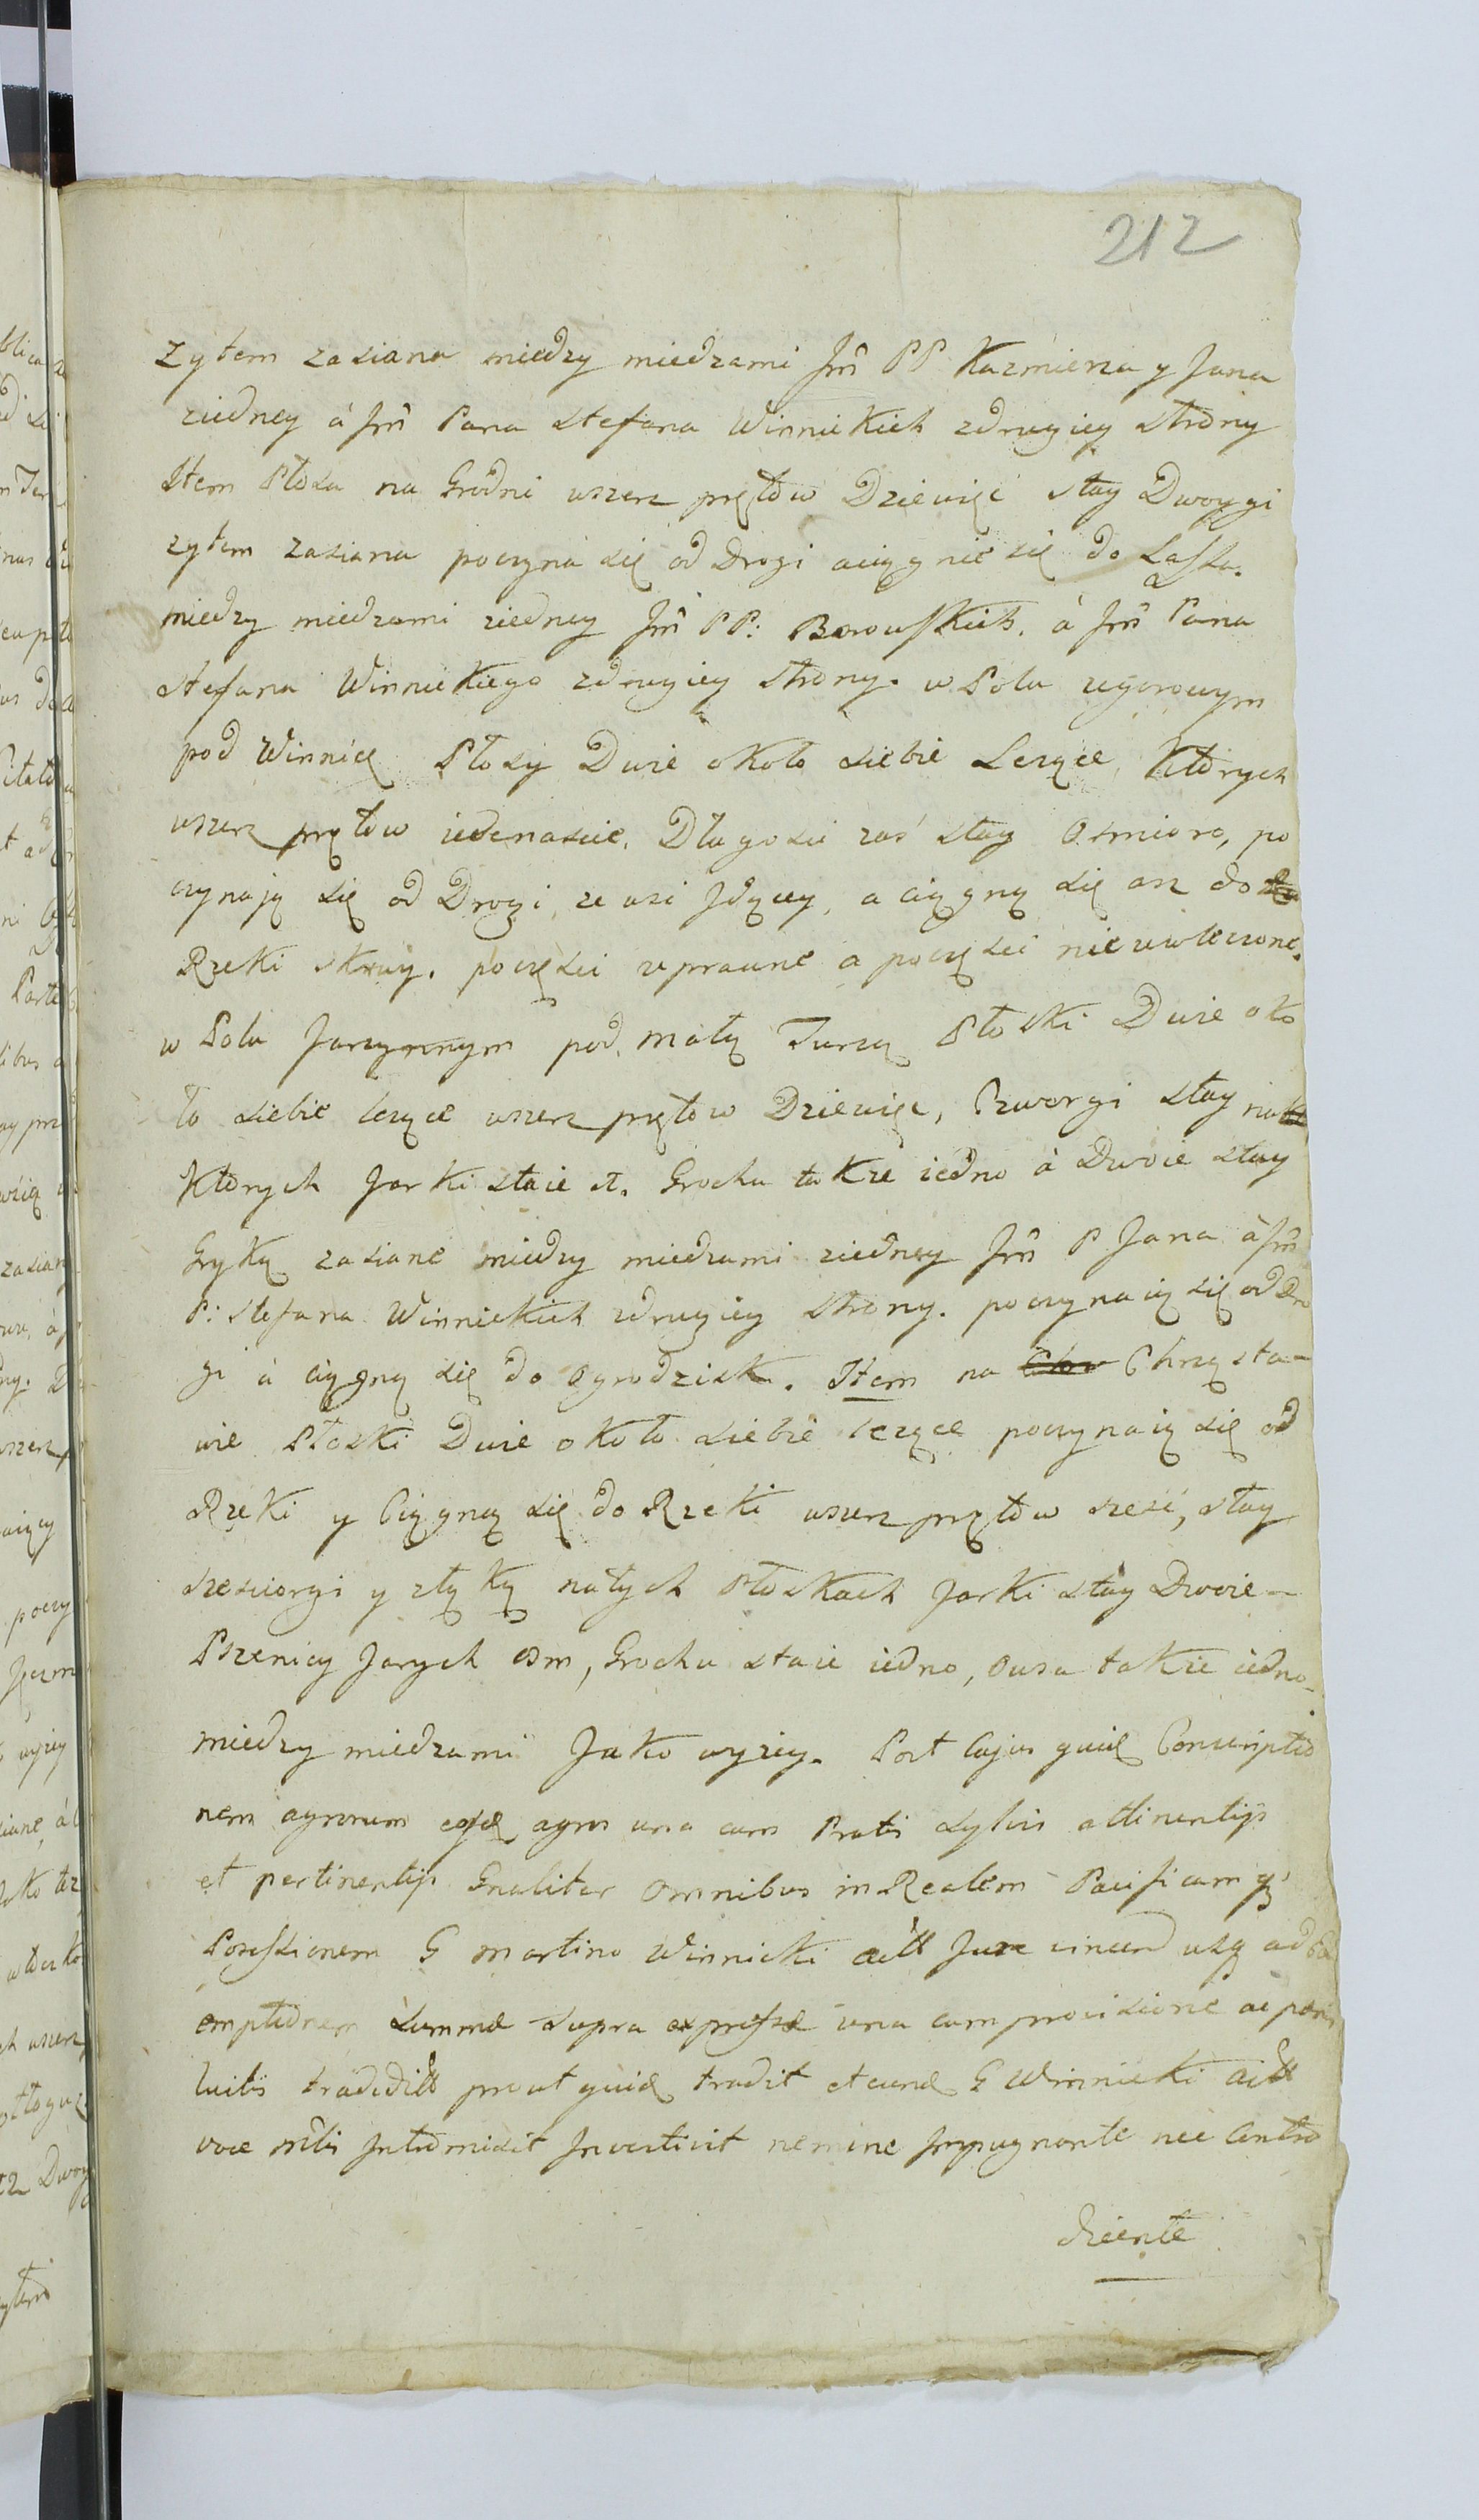 212
zytem zasiana miedzy miedzami Jm̃ PP Kazmierza y Jana
ziedney á Jm̃ Pana Stefana Winnickich zdrugiey strony
Item Płosa na Grodni wszerz prętow Dziewięc stay Dworgi
zytem zasiana poczyna się od Drogi aciągnie się do Lassa.
miedzy miedzami ziedney Jm̃ PP: Borowskich. á Jm̃ Pana
Stefana Winnickiego zdrugiey strony. w Polu ugorowym
pod Winnicę Płosy Dwie około siebie Lezące, ktorych
wszerz prętow iedenascie. Długosci zaś stay Osmioro, po
czynają się od Drogi ze wsi Jdącey, a ciągną się asz do
Rzeki skruy. poczęsci uprawne a poczęsci nieuwleczone.
w Polu Jarzynnym pod małą Turzą Płoski Dwie oko
ło siebie lezące wszerz prętow Dziewięc, Czworgi stay na
ktorych Jarki staie 1. Grochu takze iedno á Dwoie stay
Gryką zasiane miedzy miedzami ziedney Jm̃ P Jana á Jm̃
P: Stefana Winnickich zdrugiey strony. poczynaią się od Dro
gi á ciągną się do Ogrodzisk. Item na Chrząsta-
wie Płoski Dwie około siebie lezące poczynaią się od
Rzeki y Ciągną się do Rzeki wszerz prętow szesć, stay
szesciorgi y złąką natych Płoskach Jarki stay Dwoie
Pszenicy Jarych osm, Grochu staie iedno, Owsa takze iedno
miedzy miedzami Jako wyzey. Post Cujus quid Conscriptio
nem agrorum agros una cum Pratis Sylvis attinentijs
et pertinentijs Gnaliter Omnibus in Realem Pacificamq
Possessionem G Martino Winnicki Jure usq ad
emptionem Summæ Supra expressæ una cum provisione ac
luitis prout quid tradit et eund G Winnicki
voce Intromisit Investivit nemine Impugnante nec Contra
dicente